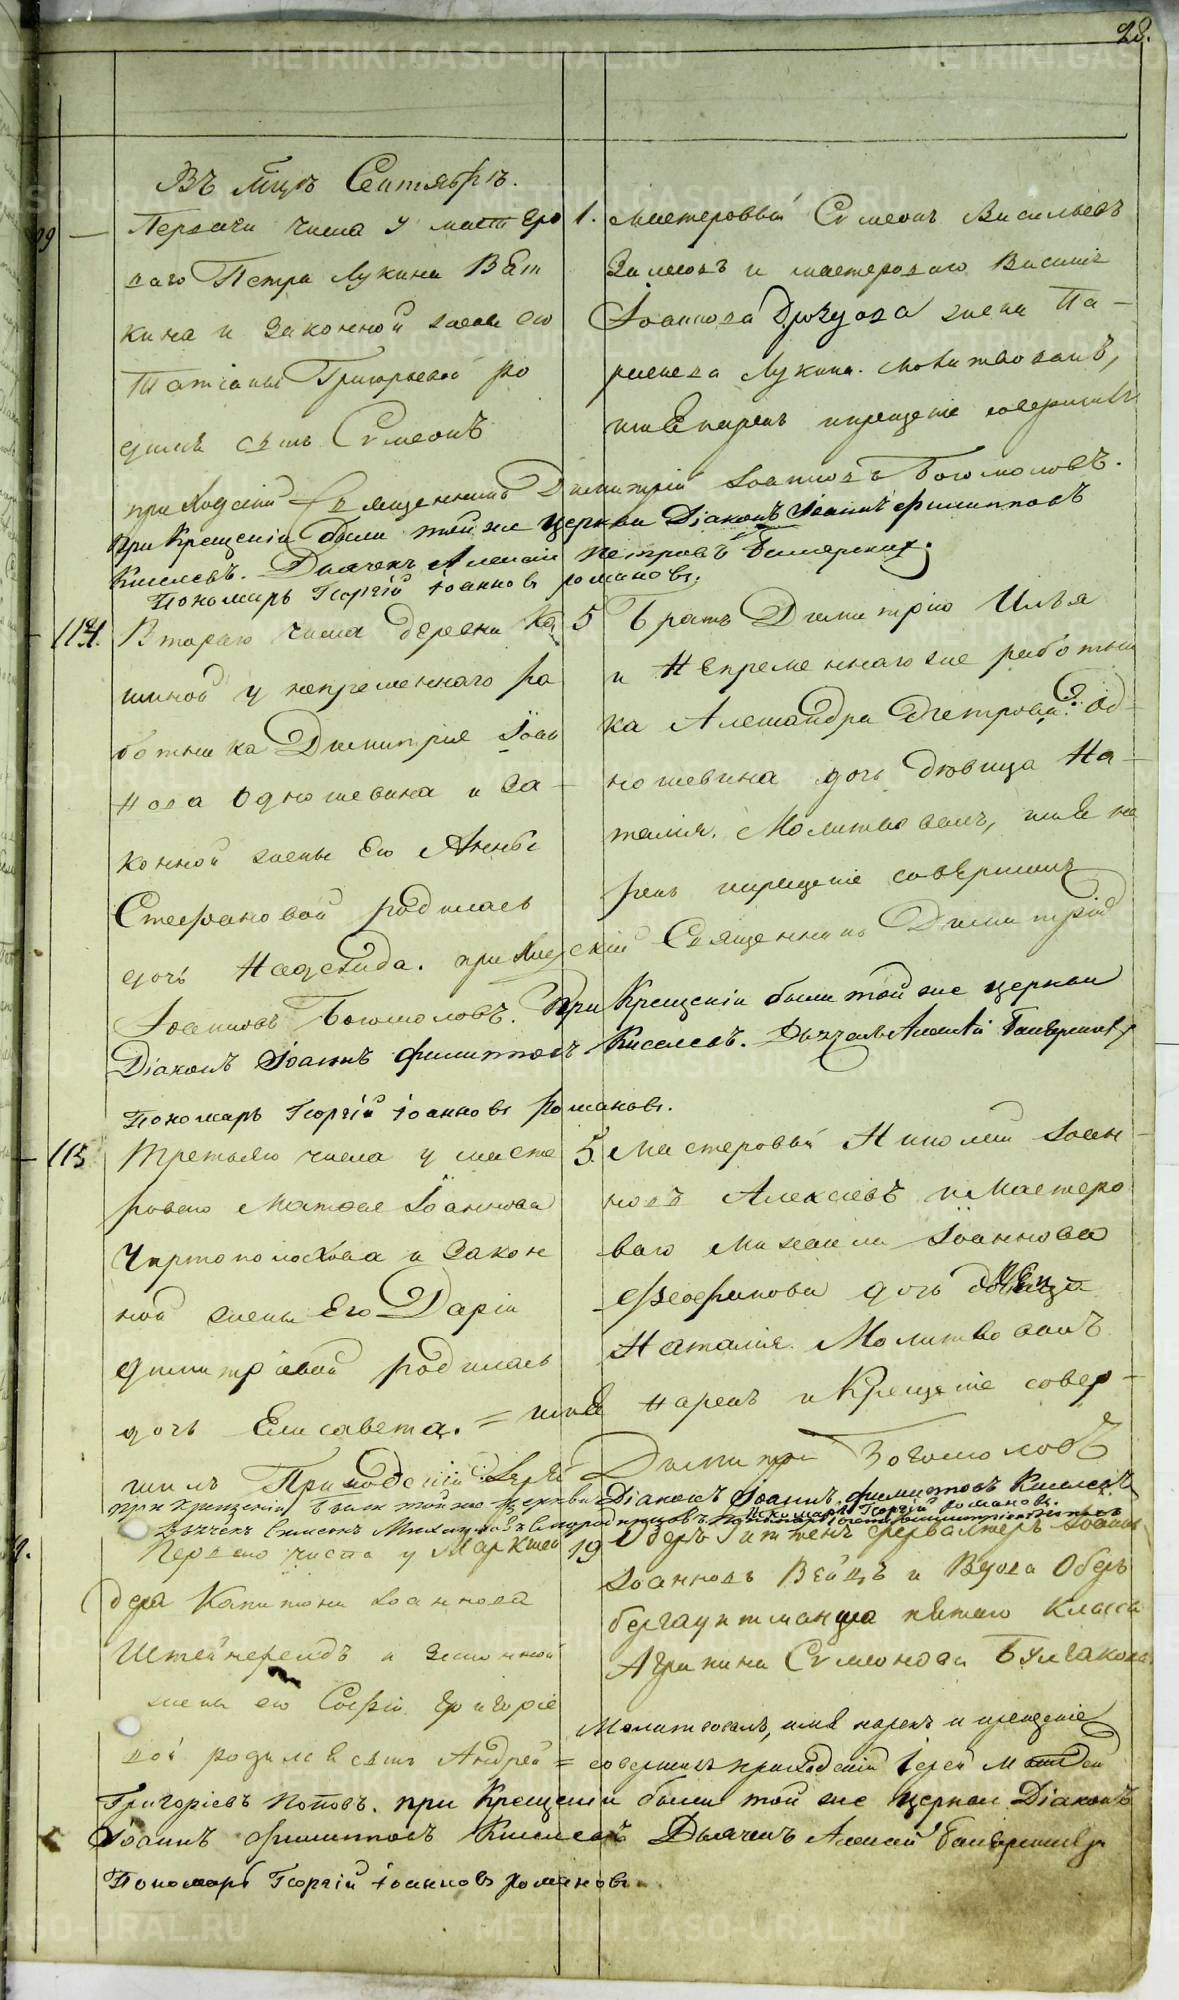 28.
Въ Мцѣ Сентябрѣ.
99 Перваго числа у мастеро
ваго Петра Лукина Вят
кина и законной жены его
Татіаны Григорьевой ро
дился сынъ Сѵмеонъ
1. мастеровый Сѵмеонъ Васильевъ
и мастероваго Василія
Іоаннова жена Па
Лукина. Молитвовалъ,
имя нарекъ и крещеніе совершилъ
приходскій Священникъ Димитрій Іоанновъ Богомоловъ.
при Крещеніи были той же церкви Діаконъ Іоаннъ Филипповъ
Киселевъ. Дьячекъ Алексій Петровъ
Пономарь Георгій Іоанновъ Романовъ.
114. Втораго числа деревни Ка
шиной у непременнаго ра
ботника Димитрія Іоан
нова Одношевина и за
конной жены Его Анны
Стефановой родилась
дочь Надежда. приходскій Священникъ Димитрій
5 братъ Димитрію Илья
и Непременнаго же работни
ка Александра Петрова Од
ношевина дочь дѣвица На
талія. Молитвовалъ, имя на
рекъ и крещеніе совершилъ
Іоанновъ Богомоловъ. При Крещеніи были той же церкви
Діаконъ Іоаннъ Филипповъ Киселевъ. Дьячекъ Алексѣй
Пономарь Георгій Іоанновъ Романовъ.
115 Третьяго числа у масте
роваго Матвея Іоаннова
Чертополохова и закон
ной жены Его Даріи
Димитріевой родилась
дочь Елисавета. = имя нарекъ и Крещеніе совер
5. Мастеровый Николай Іоан
новъ Алексіевъ и Мастеро
ваго Михаила Іоаннова
Феофанова дочь дѣвица
Наталія. Молитвовалъ
шилъ Приходскій Іерей Димитрій Богомоловъ
при крещеніи были той же церкви Діаконъ Іоаннъ Филипповъ Киселевъ
Пономарь Георгій Романовъ.
Перваго числа у Маркшей
дера Капитона Іоаннова
Штейнфельдъ и законной
жены его Софіи Григоріе
вой родился сынъ Андрей =
19 Оберъ Гиттенъ Фервалтеръ Іоаннъ
Іоанновъ Вейцъ и Вдова Оберъ
бергауптманша пятаго класса
Агрипина Сѵмеонова Булгакова
Молитвовалъ, имя нарекъ и крещеніе
совершилъ приходскій Іерей Матвей
Григоріевъ Поповъ. при Крещеніи были той же церкви Діаконъ
Іоаннъ Филипповъ Киселевъ Дьячекъ Алексѣй
Пономарь Георгій Іоанновъ Романовъ.
METRIKI.GASO-URAL.RU